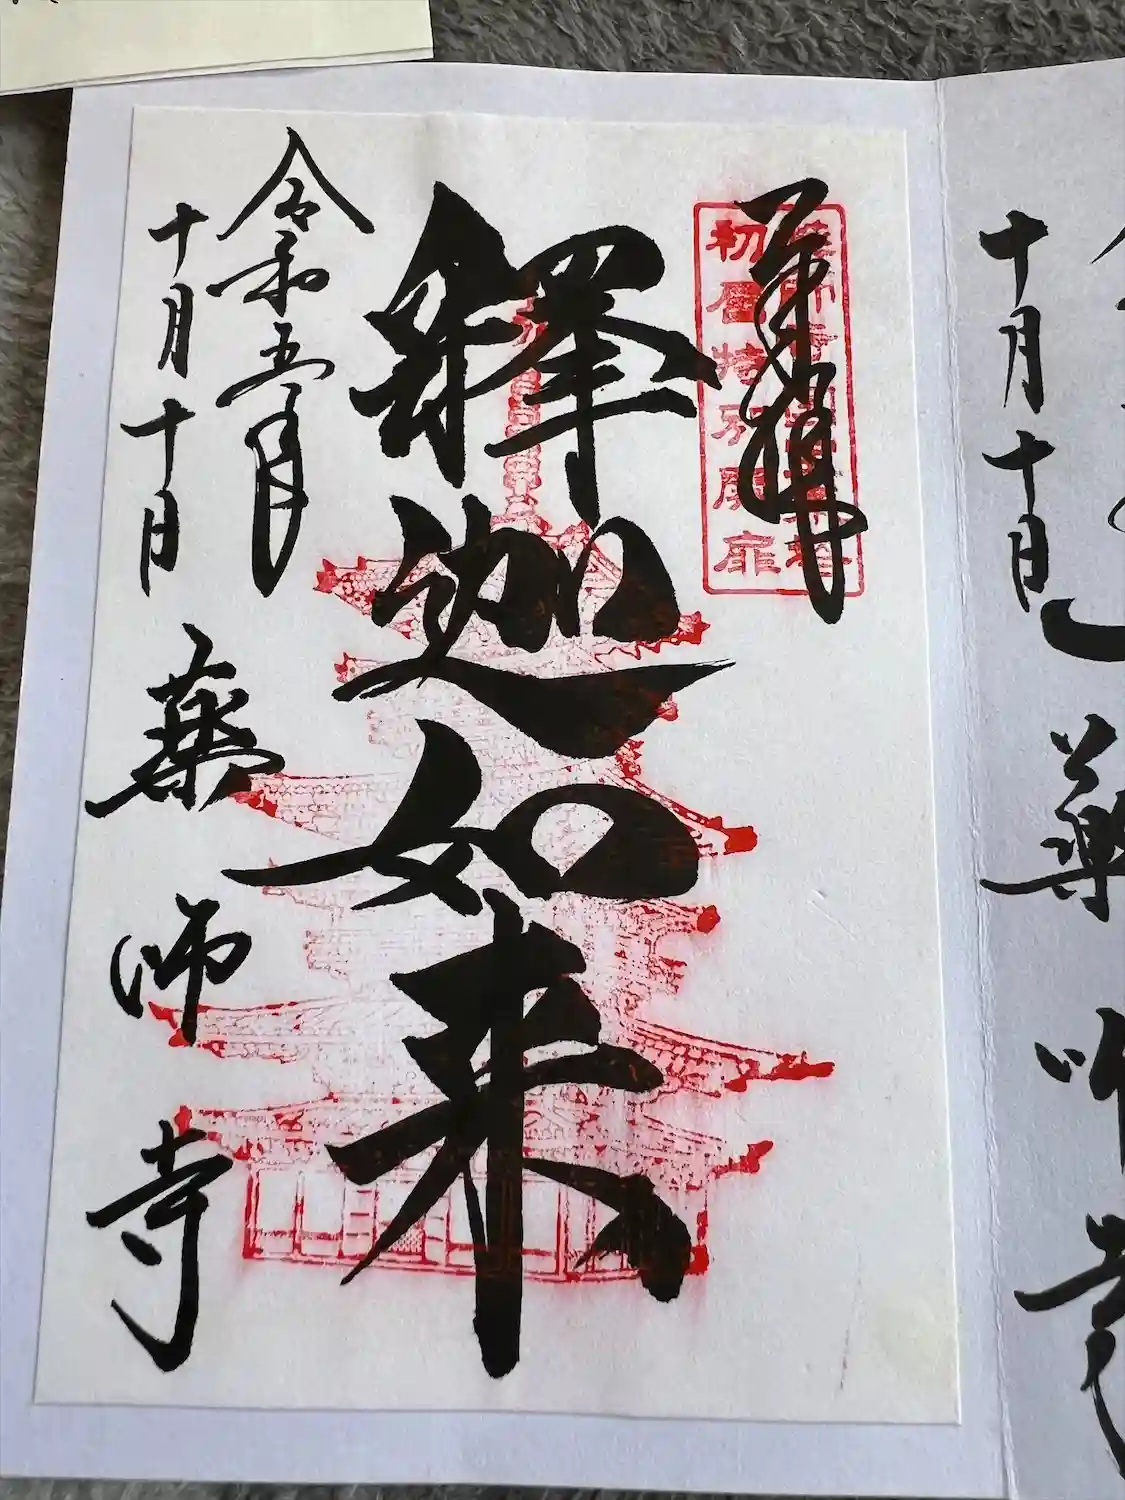 奉拝
初層特別開扉
釋迦如来
令和五年
十月十日
薬師寺
十月十日
薬師寺